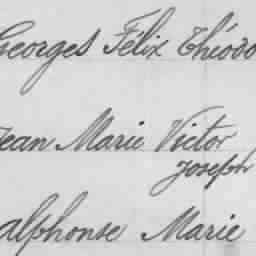 Georges Félix Théodo
Jean Marie Victor
Joseph
alphonse Marie